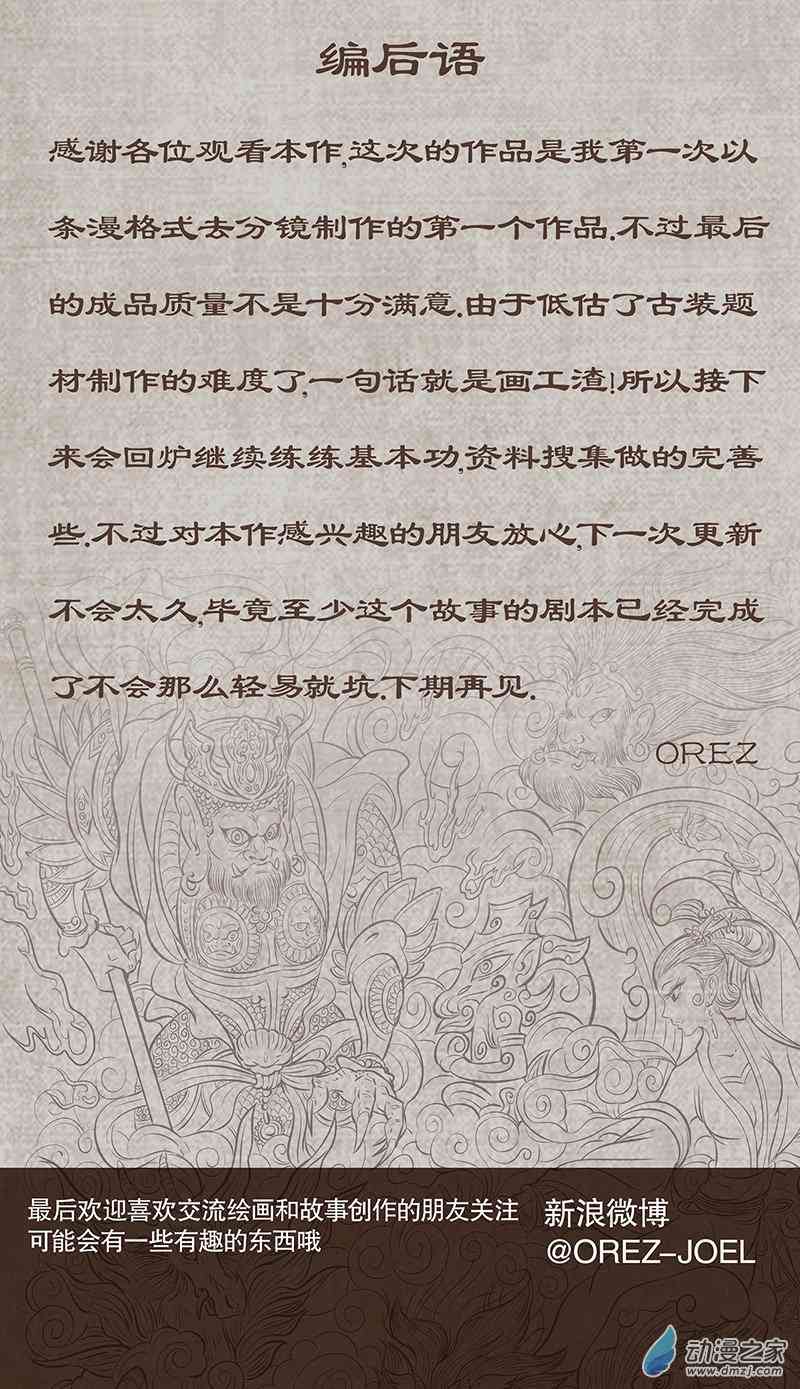 编后语
感谢各位观看本作,这次的作品是我第一次以
条漫格式去分镜制作的第一个作品.不过最后
的成品质量不是十分满意.由于低估了古装题
材制作的难度了,一句话就是画工渣!所以接下
来会回炉继续练练基本功,资料搜集做的完善
些.不过对本作感兴趣的朋友放心,下一次更新
不会太久,毕竟至少这个故事的剧本已经完成
了不会那么轻易就坑.下期再见.
OREZ
最后欢迎喜欢交流绘画和故事创作的朋友关注
可能会有一些有趣的东西哦
新浪微博
@OREZ-JOEL
动漫之家
www.dmzj.com